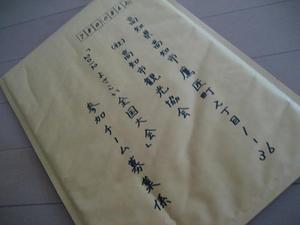 高知県高知市鷹匠町2丁目1-36
(社)高知市観光協会
「よさこい全国大会」
参加チーム募集係